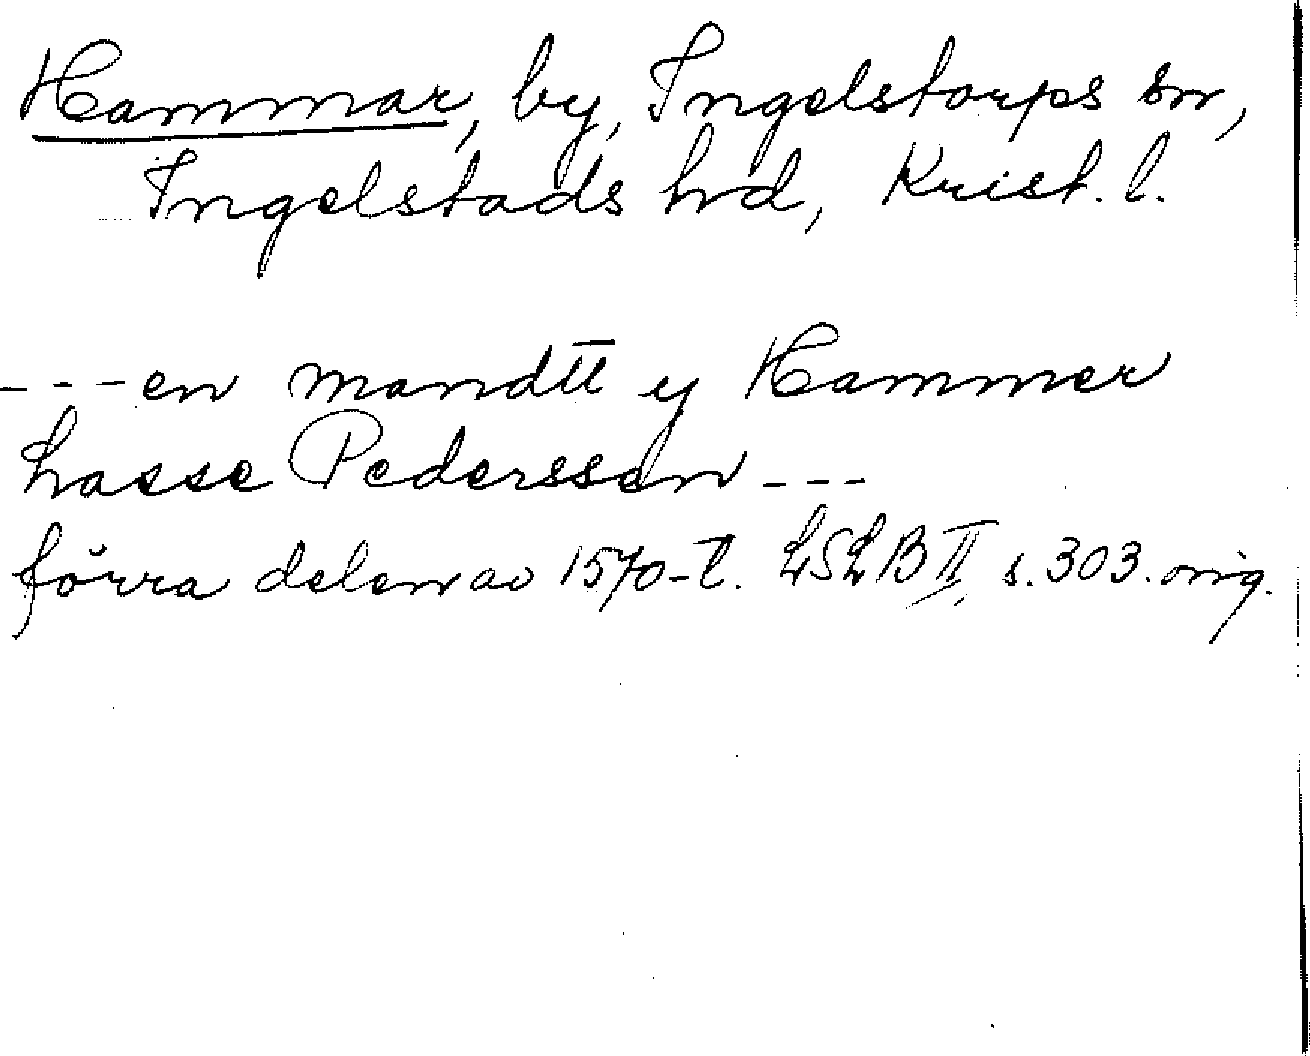 Hammar, by, Ingelstorps sn,
Ingelstads hrd, Krist. l.
---en mandtt y Hammer
Lasse Pederssen ---
förra delen av 1570-t. LSLB II, s. 303. orig.